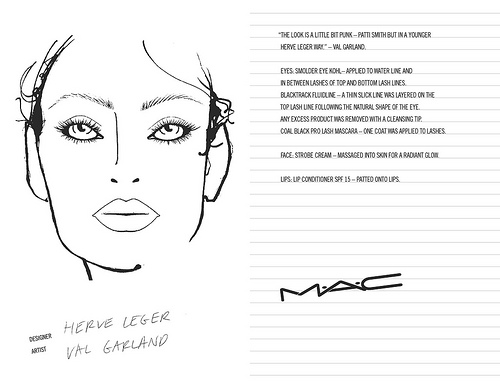 "THE LOOK IS A LITTLE BIT PUNK – PATTI SMITH BUT IN A YOUNGER
HERVE LEGER WAY." – VAL GARLAND.
EYES: SMOLDER EYE KOHL – APPLIED TO WATER LINE AND
IN BETWEEN LASHES OF TOP AND BOTTOM LASH LINES.
BLACKTRACK FLUIDLINE – A THIN SLICK LINE WAS LAYERED ON THE
TOP LASH LINE FOLLOWING THE NATURAL SHAPE OF THE EYE.
ANY EXCESS PRODUCT WAS REMOVED WITH A CLEANSING TIP.
COAL BLACK PRO LASH MASCARA – ONE COAT WAS APPLIED TO LASHES.
FACE: STROBE CREAM – MASSAGED INTO SKIN FOR A RADIANT GLOW.
LIPS: LIP CONDITIONER SPF 15 – PATTED ONTO LIPS.
M·A·C
DESIGNER HERVE LEGER
ARTIST VAL GARLAND